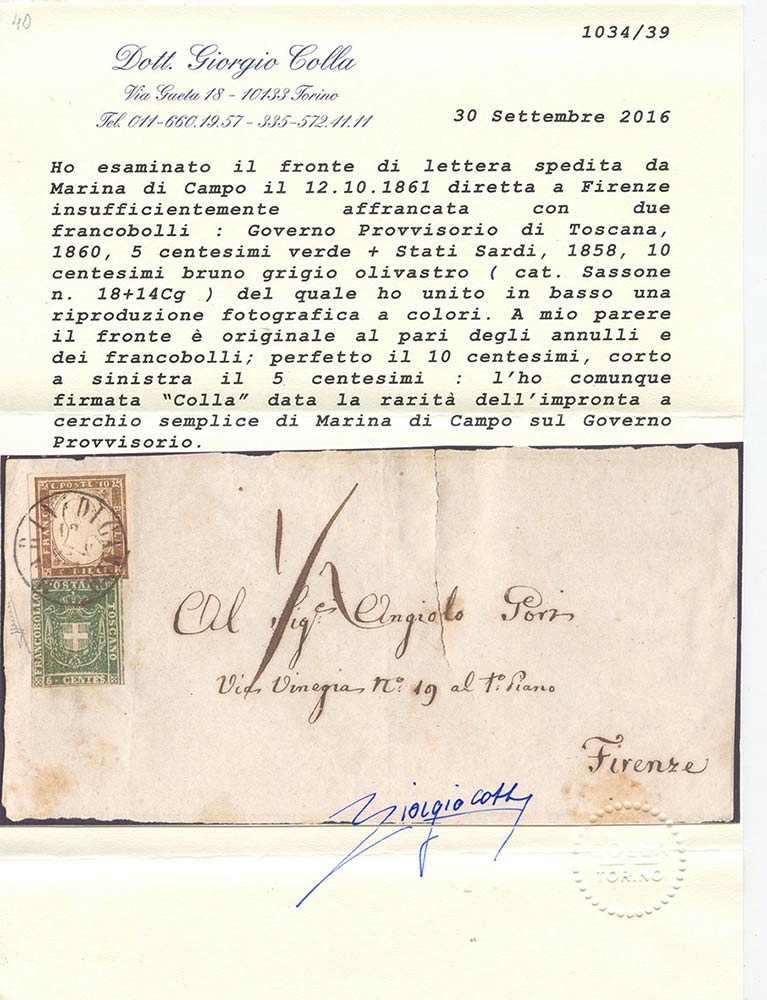 40
1034/39
Dott. Giorgio Colla
Via Gaeta 18 - 10133 Torino
Tel. 011-660.19.57 - 335-572.41.11
30 Settembre 2016
Ho esaminato il fronte di lettera spedita da
Marina di Campo il 12.10.1861 diretta a Firenze
insufficientemente affrancata con due
francobolli : Governo Provvisorio di Toscana,
1860, 5 centesimi verde + Stati Sardi, 1858, 10
centesimi bruno grigio olivastro ( cat. Sassone
n. 18+14Cg ) del quale ho unito in basso una
riproduzione fotografica a colori. A mio parere
il fronte è originale al pari degli annulli e
dei francobolli; perfetto il 10 centesimi, corto
a sinistra il 5 centesimi : l'ho comunque
firmata “Colla” data la rarità dell'impronta a
cerchio semplice di Marina di Campo sul Governo
Provvisorio.
C. POSTE 10
FRANCO
C. DIECI
POSTALE
FRANCOBOLLO
TOSCANO
5 - CENTES
Al Sig.e Angiolo Pori
Via Vinegia No. 19 al 1o. Piano
Firenze
Giorgio Colla
COLLA
TORINO